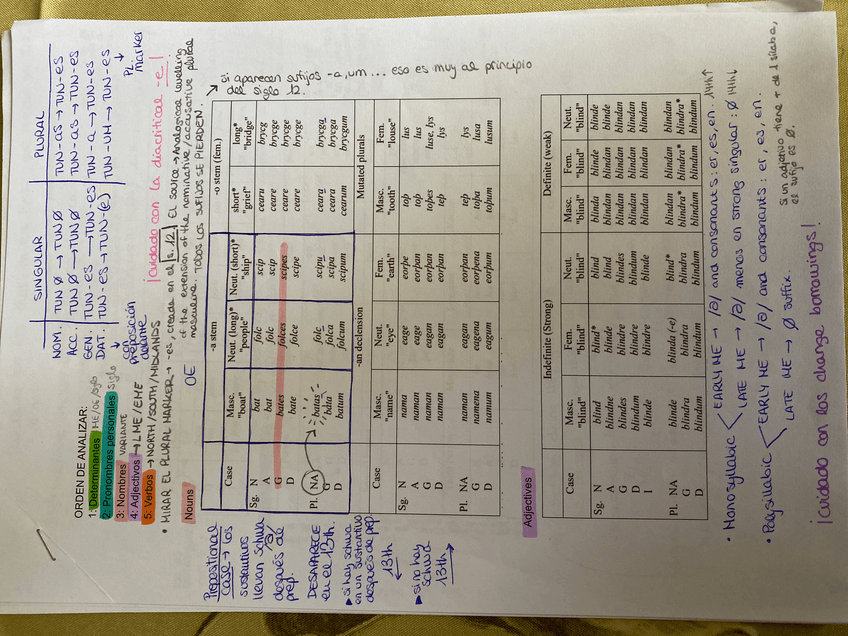 SINGULAR PLURAL
NOM. TUN Ø → TUN Ø TUN-as → TUN-es
ACC. TUN Ø → TUN Ø TUN-as → TUN-es
GEN. TUN-es → TUN-es TUN-a → TUN-es
DAT. TUN-es → TUN-(e) TUN-UM → TUN-es
↓
con preposición delante
↓
PL. marker
ORDEN DE ANALIZAR:
1: Determinantes ME/OE/siglo
2: Pronombres personales siglo
3: Nombres VARIANTE
4: Adjectivos → LME/EME
5: Verbos → NORTH/SOUTH/MIDLANDS
¡cuidado con la diacritical -e!
• MIRAR EL PLURAL MARKER → -es, creado en el s.12. El source → Analogical levelling
of the extension of the nominative/accusative plural
masculine. TODOS LOS SUFIJOS SE PIERDEN.
Nouns
OE
→ Si aparecen sufijos -a, um... eso es muy al principio
del siglo 12.
-a stem -o stem (fem.)
Case Masc. Neut. (long)* Neut. (short)* short* long*
"boat" "people" "ship" "grief" "bridge"
Sg. N bat folc scip cearu brycg
A bat folc scip ceare brycge
G bates folces scipes ceare brycge
D bate folce scipe ceare brycge
Pl. NA batas folc scipu ceara brycga
G bata folca scipa ceara brycga
D batum folcum scipum cearum brycgum
-an declension Mutated plurals
Case Masc. Neut. Fem. Masc. Fem.
"name" "eye" "earth" "tooth" "louse"
Sg. N nama eage eorþe toþ lus
A naman eage eorþan toþ lus
G naman eagan eorþan toþes luse, lys
D naman eagan eorþan teþ lys
Pl. NA naman eagan eorþan teþ lys
G namena eagena eorþena toþa lusa
D namum eagum eorþum toþum lusum
Prepositional
case → los
sustantivos
llevan schwa
/ə/
después de
prep.
DESAPARECE
en el 13th.
▸ si hay schwa
en un sustantivo
después de prep.
13th
←
▸ si no hay
schwa
13th
→
Adjectives
Indefinite (Strong) Definite (weak)
Case Masc. Fem. Neut. Masc. Fem. Neut.
"blind" "blind" "blind" "blind" "blind" "blind"
Sg. N blind blind* blind blinda blinde blinde
A blindne blinde blind blindan blindan blinde
G blindes blindre blindes blindan blindan blindan
D blindum blindre blindum blindan blindan blindan
I blinde blindre blinde blindan blindan blindan
Pl. NA blinde blinda (-e) blind* blindan blindan blindan
G blindra blindra blindra blindra* blindra* blindra*
D blindum blindum blindum blindum blindum blindum
• Monosyllabic EARLY ME → /ə/ and consonants: er, es, en. 14th↑
LATE ME → /ə/ menos en strong singular: Ø 14th↓
• Polysyllabic EARLY ME → /ə/ and consonants: er, es, en.
LATE ME → Ø suffix.
si un adjetivo tiene + de 1 sílaba,
el sufijo es Ø.
¡cuidado con los change borrowings!